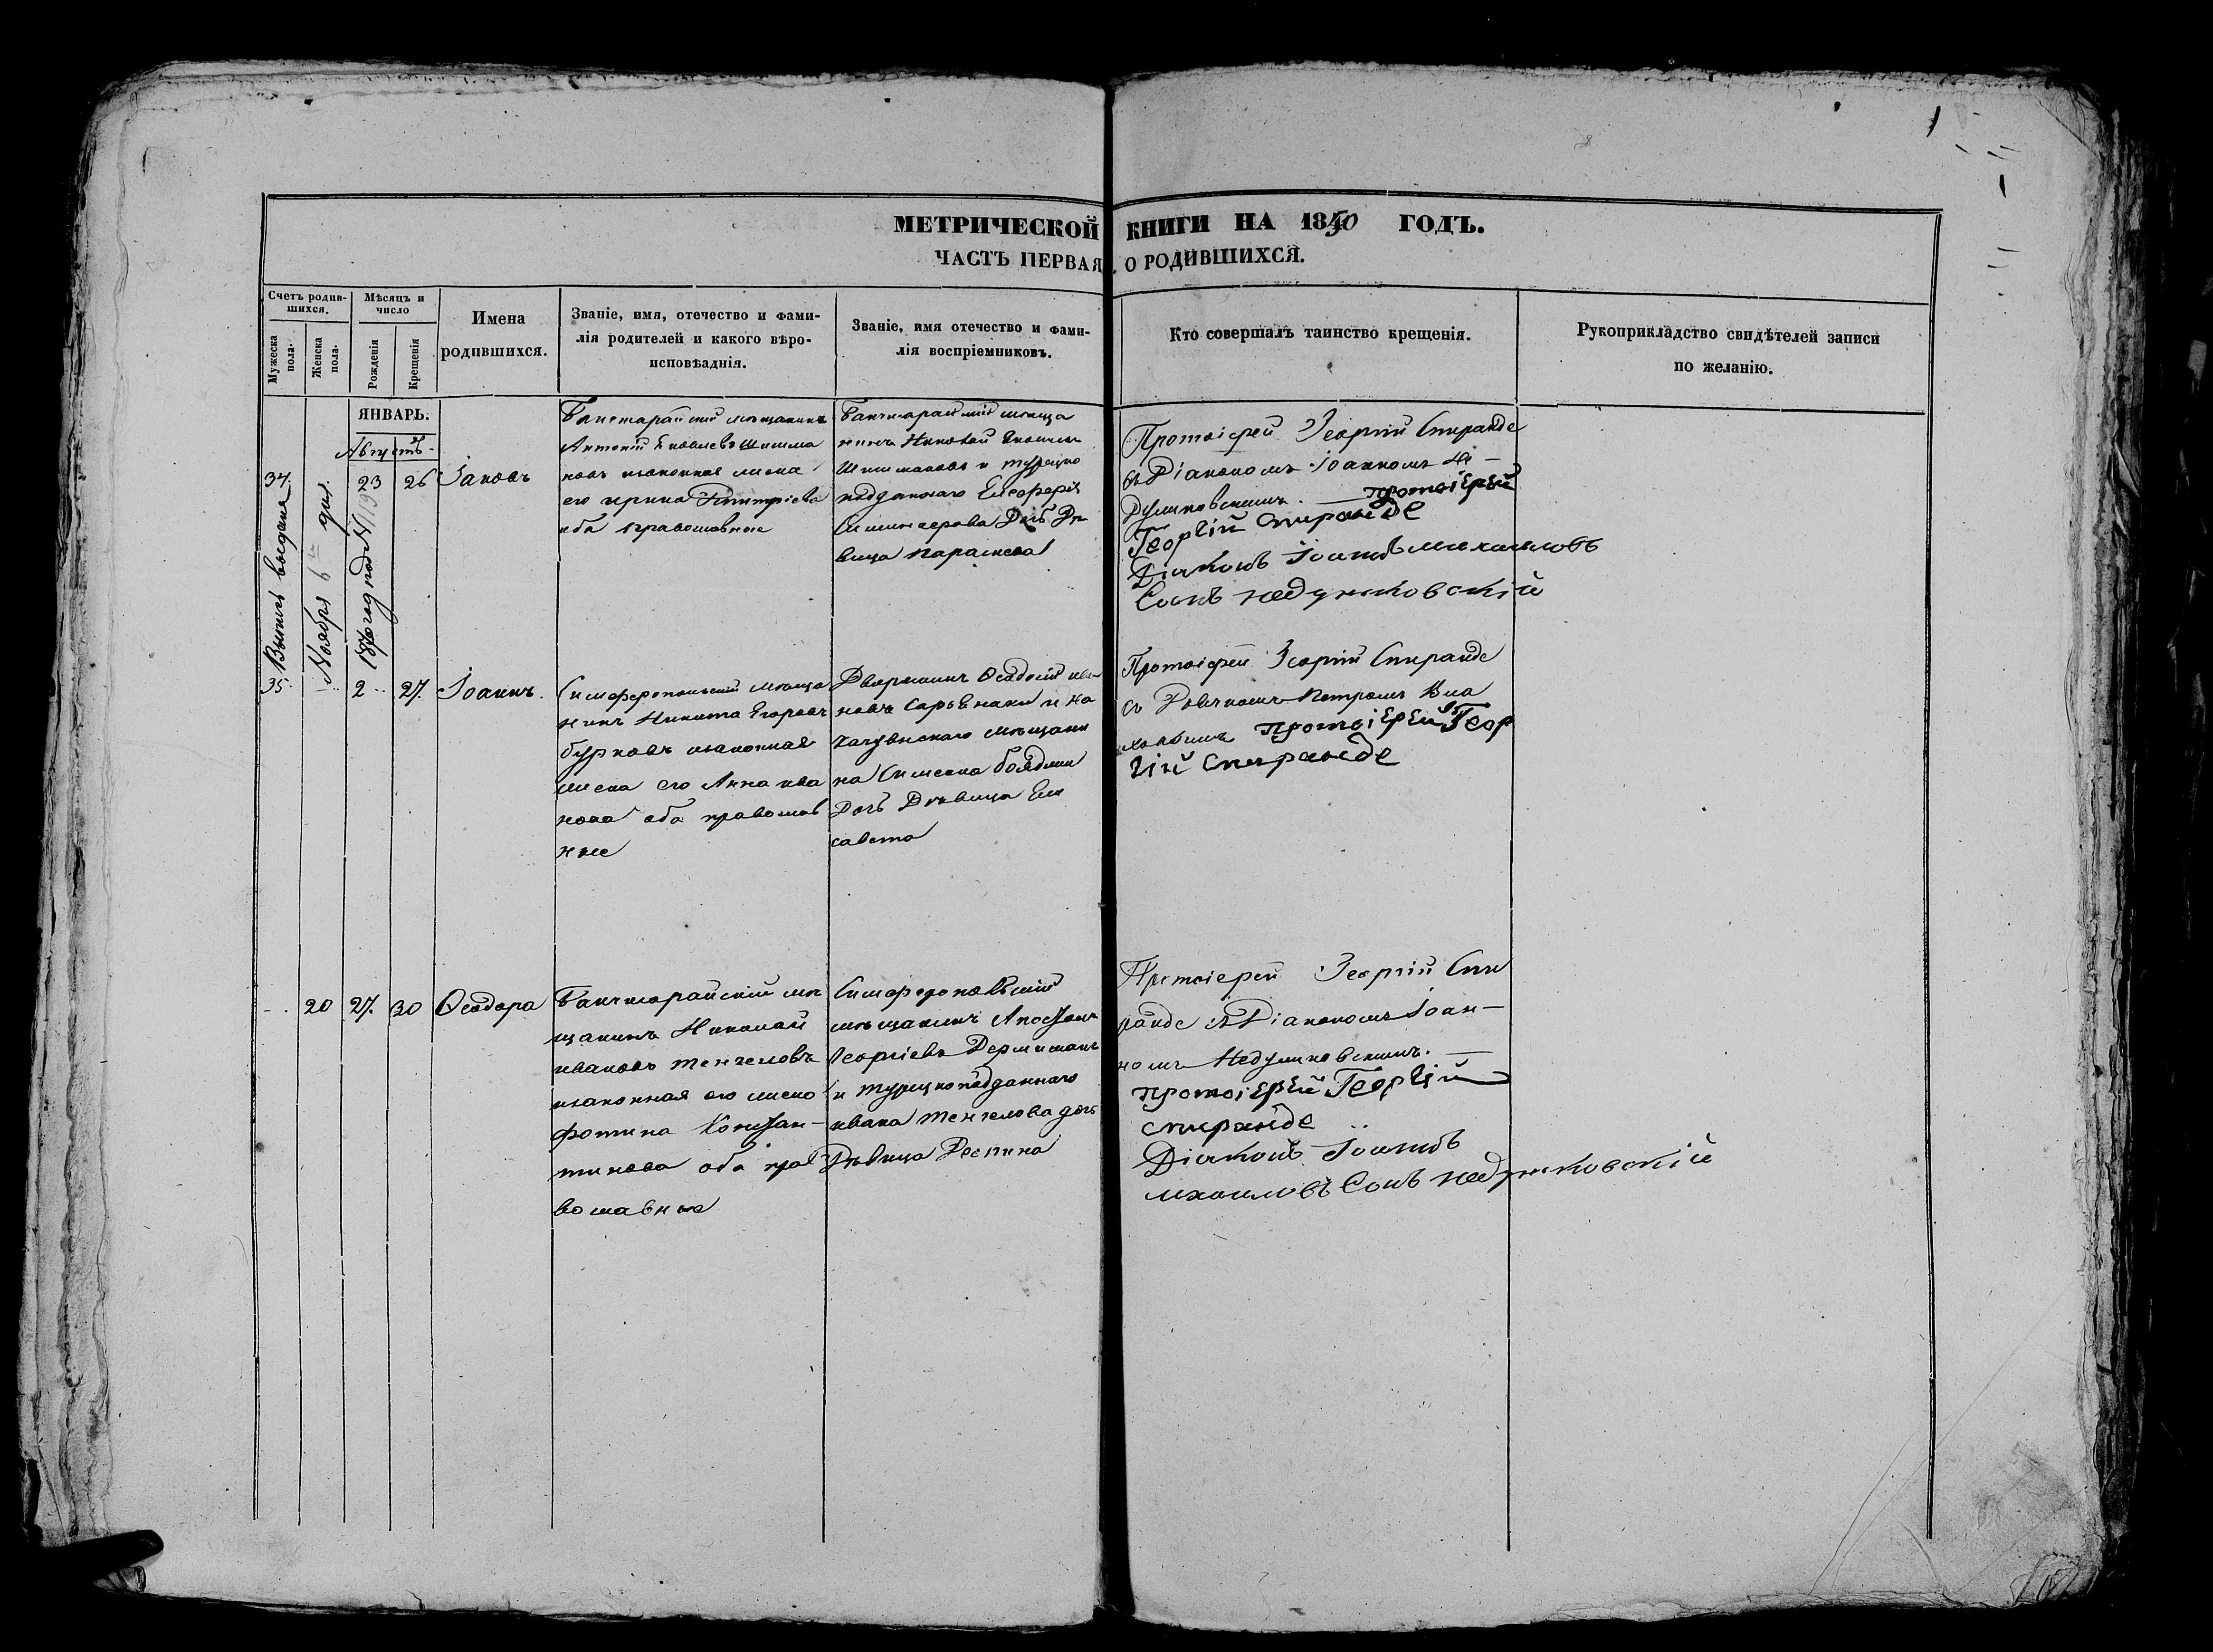 МЕТРИЧЕСКОЙ КНИГИ НА 1850 ГОДЪ.
ЧАСТЬ ПЕРВАЯ. О РОДИВШИХСЯ.
Счетъ родив-
шихся.
Мужеска
пола.
Женска
пола.
Мѣсяцъ и
число
Рожденія
Крещенія
Имена
родившихся.
Званіе, имя, отечество и фами-
лія родителей и какого вѣро-
исповѣданія.
Званіе, имя отечество и фами-
лія воспріемниковъ.
Кто совершалъ таинство крещенія.
Рукоприкладство свидѣтелей записи
по желанію.
ЯНВАРЬ.
Августъ
34. 23 26 Іаковъ
мѣщанинъ
Антоній Яковлевъ Шишма
новъ и законная жена
его Ирина Дмитріева
оба православные
Бахчисарайскій мѣща
нинъ Николай
Шишмановъ и турецко
подданнаго Елефтерія
дочь дѣ
вица Параскева
Протоіерей Георгій Спиранде
съ Діакономъ Іоанномъ Не-
дулковскимъ. Протоіерей
Георгій Спиранде
Діаконъ Іоаннъ Михаиловъ
Сынъ Недулковскій
Выпись выдана
Ноября 6 дня
1870 года под №
35. 2 27. Іоаннъ.
Симферопольскій мѣща
нинъ Никита Егоровъ
бурковъ и законная
жена его Анна Ива
нова оба православ
ные
Дворянинъ Ѳеодосій Ива-
новъ и На
хичеванскаго мѣщани
на Симеона
Дочь Дѣвица Ели
савета
Протоіерей Георгій Спиранде
съ Дьячкомъ Петромъ
Протоіерей Геор
гій Спиранде
20 27. 30 Ѳеодора
Бахчисарайскій мѣ
щанинъ Николай
Ивановъ Тенчеловъ
и законная его жена
Фотина Констан-
тинова оба пра
вославные
Симферопольскій
мѣщанинъ Апостолъ
Георгіевъ
и турецкоподданнаго
Ивана Тенчелова дочь
Дѣвица Деспина
Протоіерей Георгій Спи
ранде съ Діакономъ Іоан-
номъ Недулковскимъ.
Протоіерей Георгій
Спиранде
Діаконъ Іоаннъ
Михаиловъ Сынъ Недулковскій